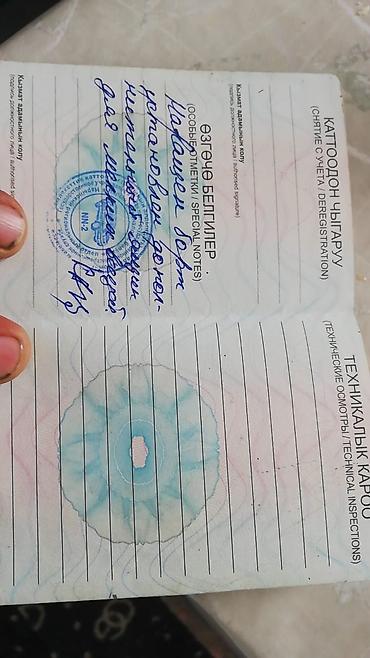 КАТТООДОН ЧЫГАРУУ
(СНЯТИЕ С УЧЕТА / DEREGISTRATION)
Кызмат адамынын колу
(подпись должностного лица / authorised signature)
ӨЗГӨЧӨ БЕЛГИЛЕР
(ОСОБЫЕ ОТМЕТКИ / SPECIAL NOTES)
На вашем борт
установлен допол-
нительный
для
NN-2
Кызмат адамынын колу
(подпись должностного лица / authorised
ТЕХНИКАЛЫК КАРОО
(ТЕХНИЧЕСКИЕ ОСМОТРЫ / TECHNICAL INSPECTIONS)